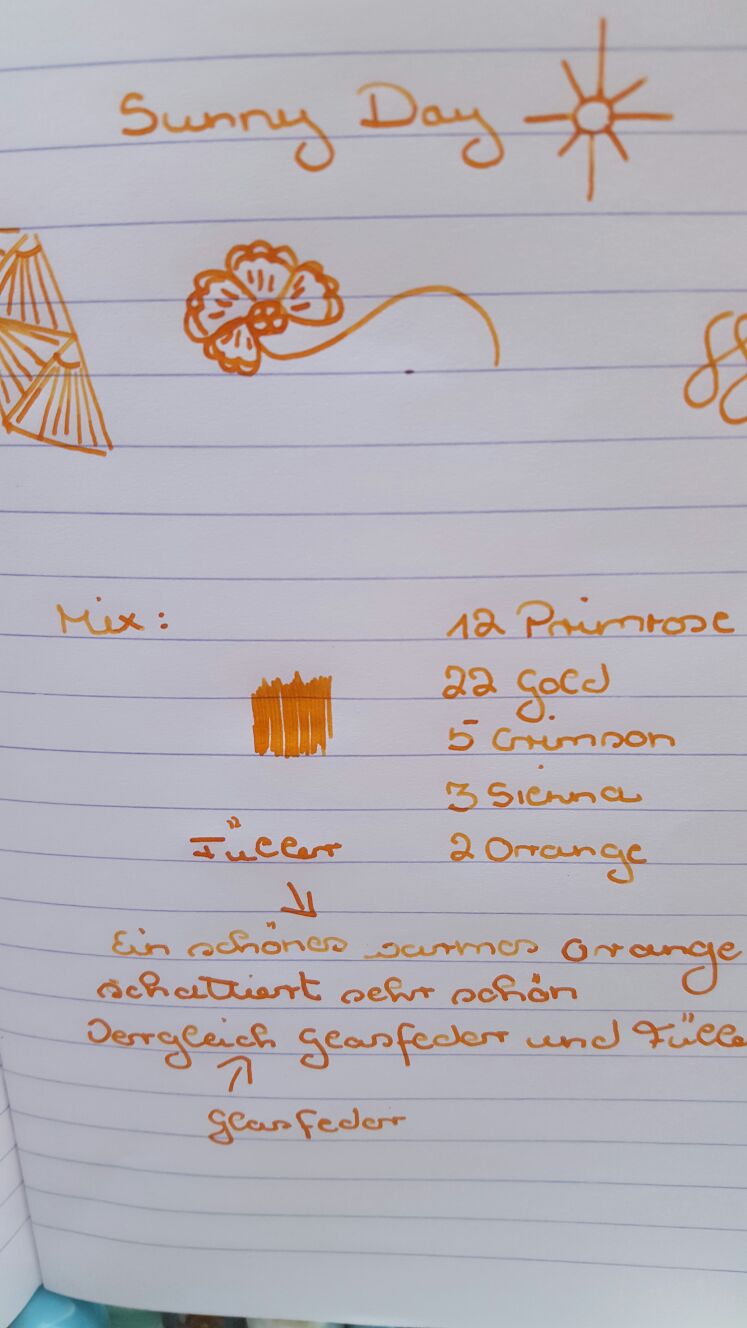 Sunny Day
Mix:
12 Primrose
22 Gold
5 Crimson
3 Sienna
2 Orange
Füller
Ein schönes warmes Orange
schattiert sehr schön
Vergleich Glasfeder und Fülle
Glasfeder